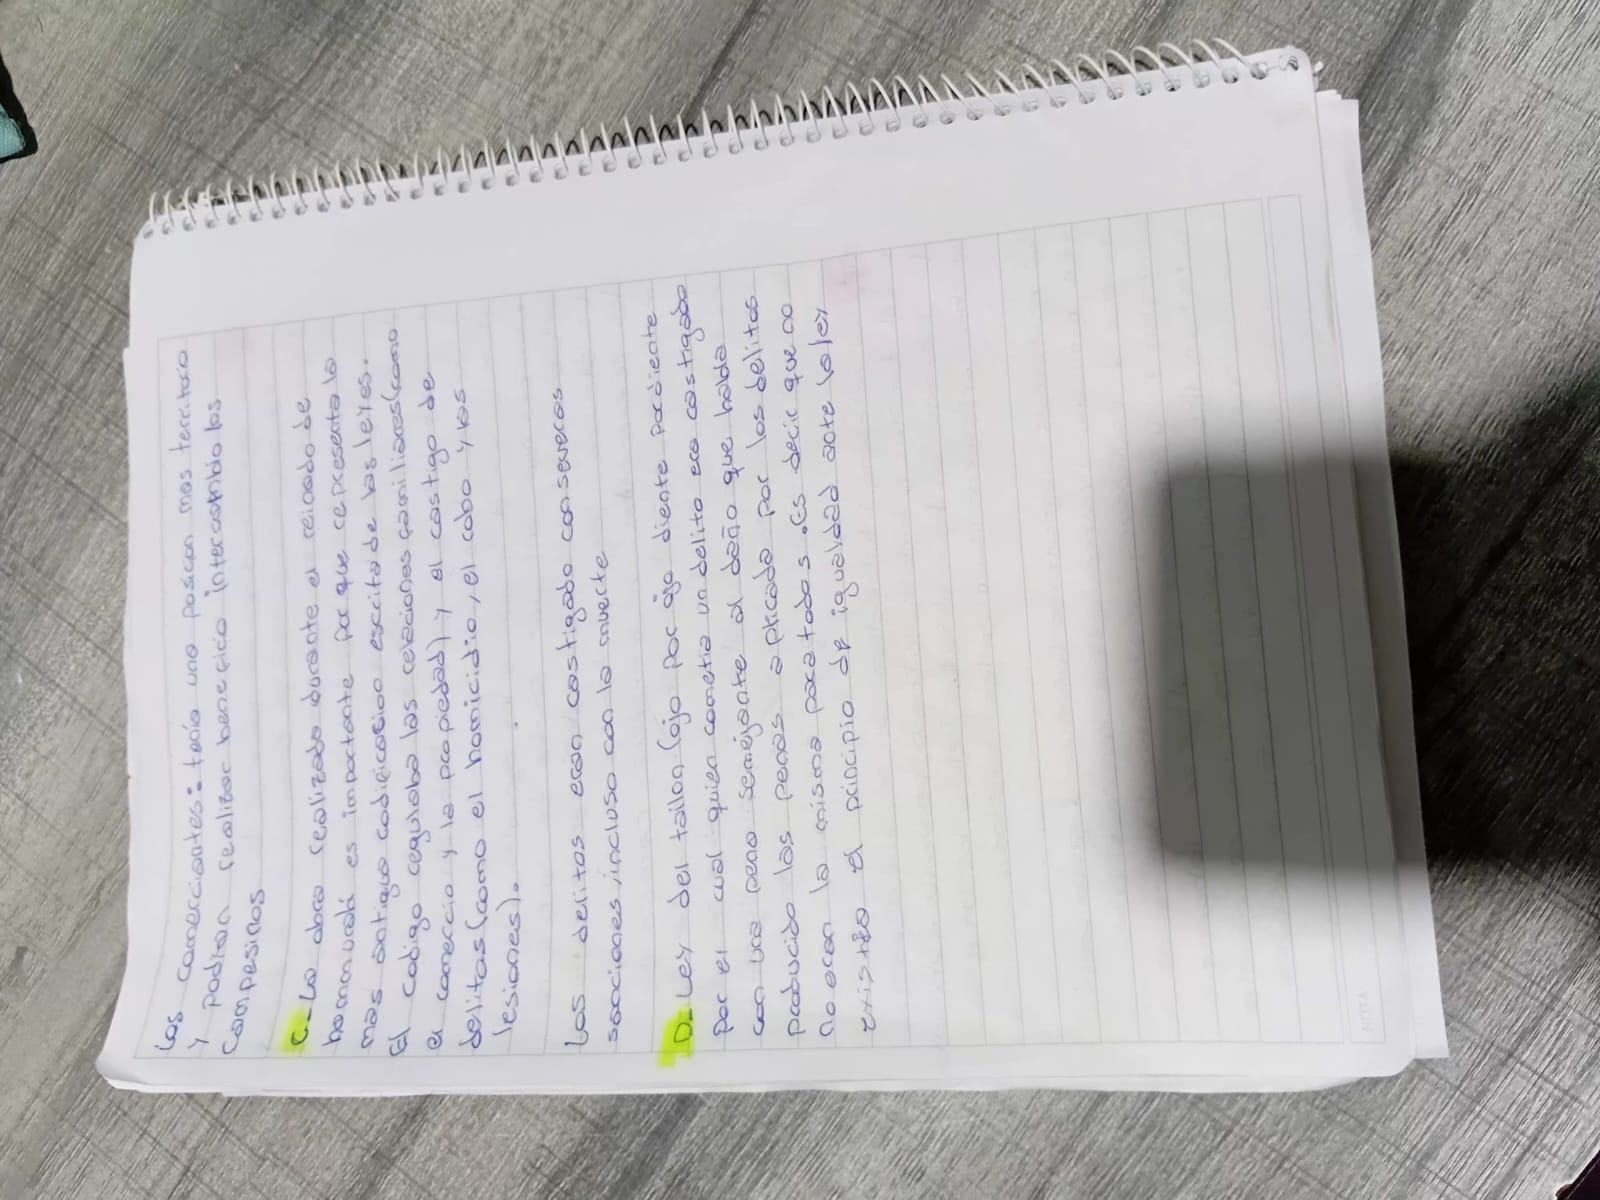 Los comerciantes: tenía una posicion mas territorio
y podian realizar beneficio intercambio los
campesinos
C_ La obra realizada durante el reinado de
hammurabi es importante por que representa la
mas antiguo codificasion escrita de las leyes.
El codigo regulaba las relaciones familiares (como
el comercio y la propedad) y el castigo de
delitos (como el homicidio, el robo y las
lesiones).
Los delitos eran castigado con severas
sanciones, incluso con la muerte
D_ Ley del tailon (ojo por ojo diente por diente
por el cual quien cometia un delito era castigado
con una pena semejante al daño que habia
producido las penas aplicada por los delitos
no eran la misma para todos. Es decir que no
existia el principio de igualdad ante la ley
NOTA